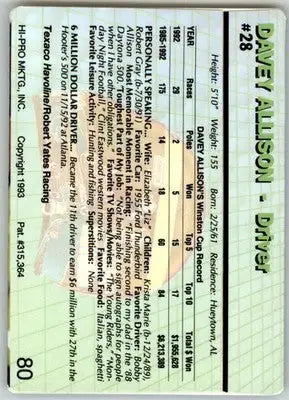 DAVEY ALLISON - Driver
#28
Height: 5'10" Weight: 155 Born: 2/25/61 Residence: Hueytown, AL
DAVEY ALLISON'S Winston Cup Record
YEAR Races Poles Won Top 5 Top 10 Total $ Won
1992 29 2 5 15 17 $1,955,628
1985-1992 175 14 18 60 84 $6,213,389
PERSONALLY SPEAKING... Wife: Elizabeth "Liz" Children: Krista Marie (b-12/24/89),
Robert Gray (b-7/30/91) Favorite Car: 1955 Ford Thunderbird Favorite Driver: Bobby
Allison Most Memorable Moment in Racing: "Finishing second to my dad in the '88
Daytona 500" Toughest Part of My Job: "Not being able to sign autographs for people
when I have other obligations." Favorite TV Shows/Movies: "The Young Riders," "Mon-
day Night Football," Clint Eastwood western movies Favorite Food: Italian, spaghetti
Favorite Leisure Activity: Hunting and fishing Superstitions: None
6 MILLION DOLLAR DRIVER... Became the 11th driver to earn $6 million with 27th in the
Hooter's 500 on 11/15/92 at Atlanta.
Texaco Havoline/Robert Yates Racing
HI-PRO MKTG., INC. Copyright 1993 Pat. #315,364 80